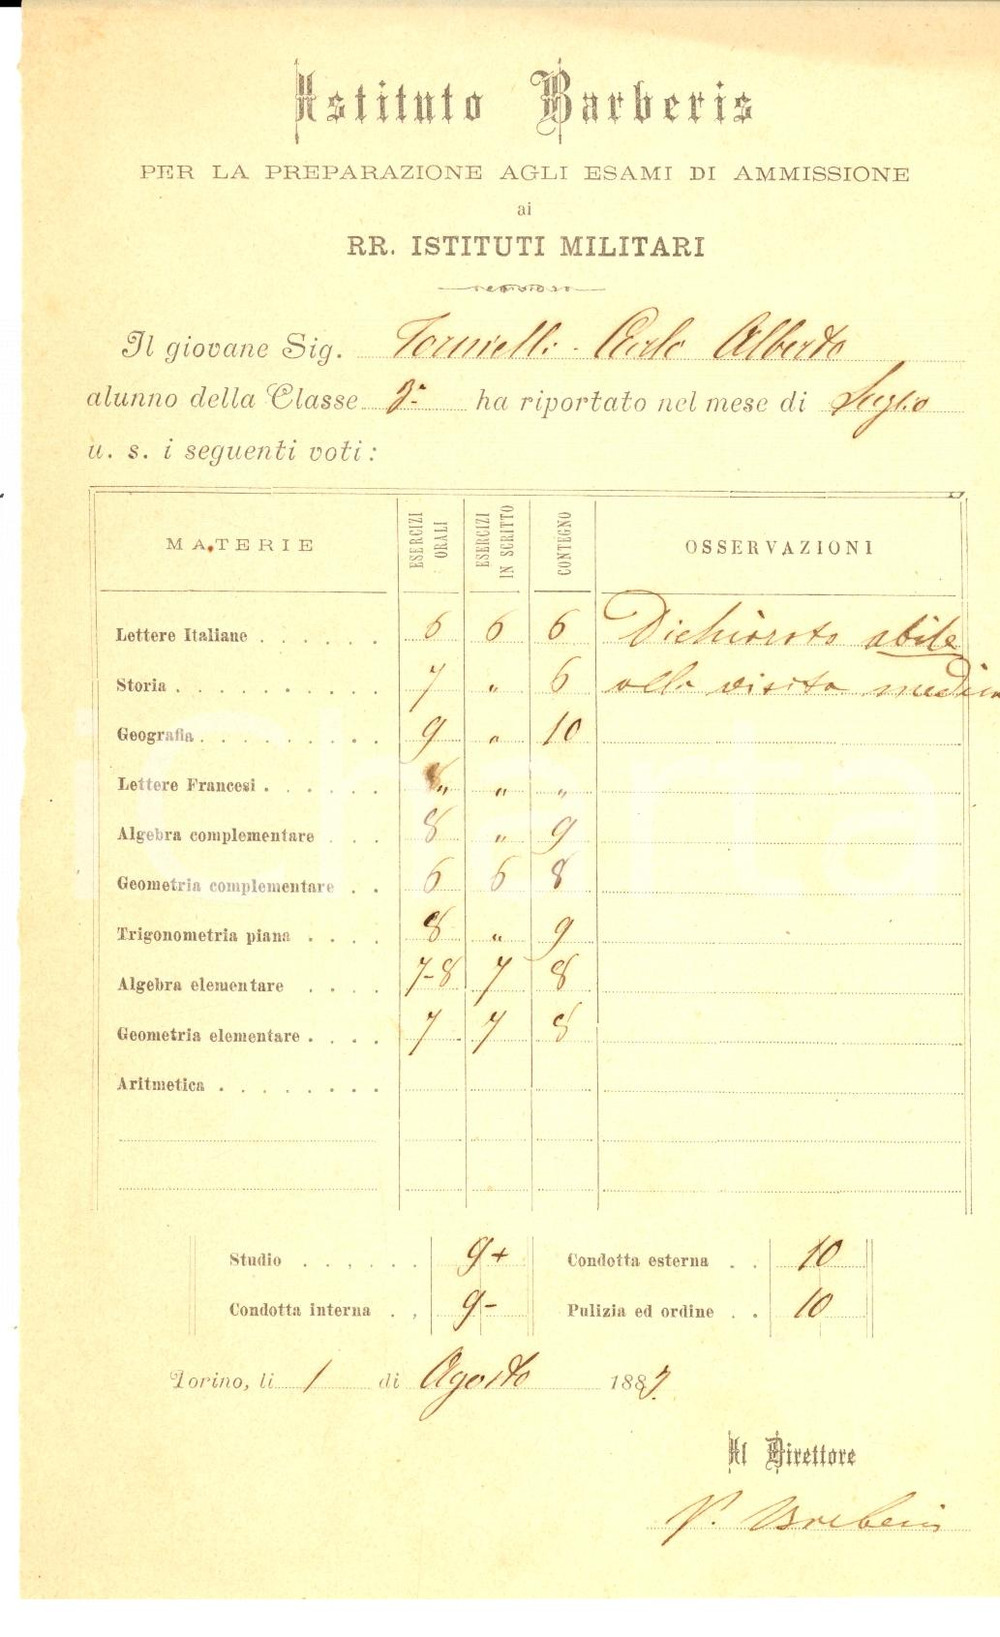 Istituto Barberis
PER LA PREPARAZIONE AGLI ESAMI DI AMMISSIONE
ai
RR. ISTITUTI MILITARI
Il giovane Sig. Tornielli - Carlo Alberto
alunno della Classe 3ª ha riportato nel mese di Luglio
u. s. i seguenti voti:
MATERIE ESERCIZI ORALI ESERCIZI IN SCRITTO CONTEGNO OSSERVAZIONI
Lettere Italiane . . . . . . 6 6 6 Dichiarato abile
Storia . . . . . . . . . . 7 " 6 alla visita medica
Geografia . . . . . . . . . 9 " 10
Lettere Francesi . . . . . . " " "
Algebra complementare . . . 8 " 9
Geometria complementare . . 6 6 8
Trigonometria piana . . . . 8 " 9
Algebra elementare . . . . 7-8 7 8
Geometria elementare . . . . 7 7 8
Aritmetica . . . . . . . .
Studio . . . . . . 9+ Condotta esterna . . 10
Condotta interna . . 9- Pulizia ed ordine . . 10
Torino, li 1 di Agosto 1887.
Il Direttore
V. Barberis